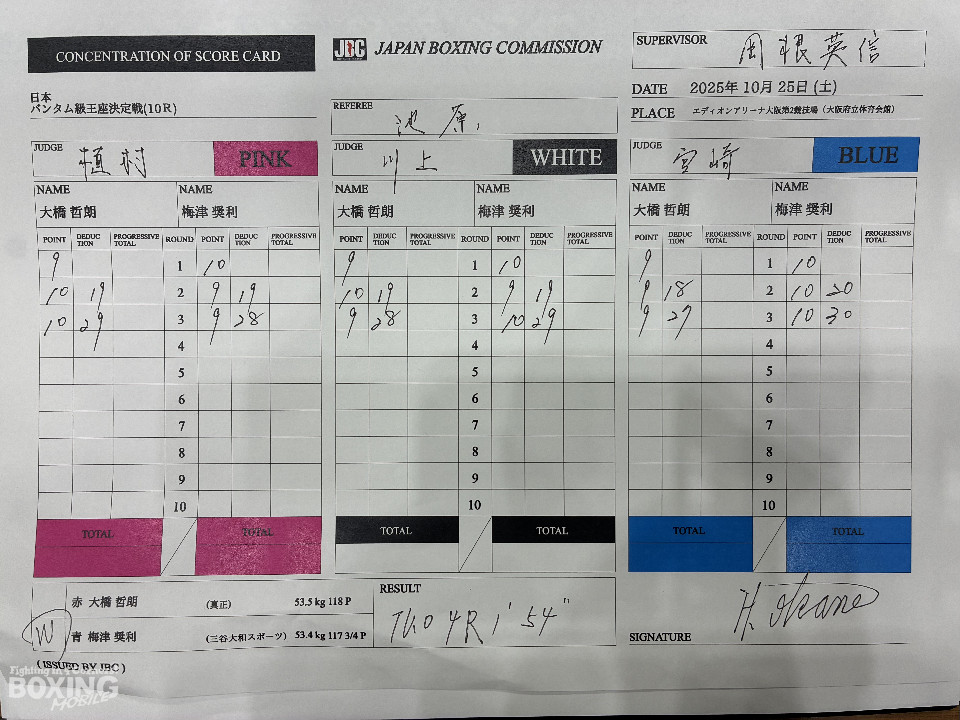 CONCENTRATION OF SCORE CARD
JBC JAPAN BOXING COMMISSION
SUPERVISOR 岡根英信
日本
バンタム級王座決定戦(10R)
REFEREE 池原
DATE 2025年 10月 25日 (土)
PLACE エディオンアリーナ大阪第2競技場（大阪府立体育会館）
JUDGE 植村 PINK
JUDGE 川上 WHITE
JUDGE 宮崎 BLUE
NAME NAME NAME NAME NAME NAME
大橋 哲朗 梅津 奨利 大橋 哲朗 梅津 奨利 大橋 哲朗 梅津 奨利
POINT DEDUCTION PROGRESSIVE TOTAL ROUND POINT DEDUCTION PROGRESSIVE TOTAL POINT DEDUCTION PROGRESSIVE TOTAL ROUND POINT DEDUCTION PROGRESSIVE TOTAL POINT DEDUCTION PROGRESSIVE TOTAL ROUND POINT DEDUCTION PROGRESSIVE TOTAL
9 1 10 9 1 10 9 1 10
10 19 2 9 19 10 19 2 9 19 9 18 2 10 20
10 29 3 9 28 9 28 3 10 29 9 27 3 10 30
4 4 4
5 5 5
6 6 6
7 7 7
8 8 8
9 9 9
10 10 10
TOTAL TOTAL TOTAL TOTAL TOTAL TOTAL
赤 大橋 哲朗 (真正) 53.5 kg 118 P
W 青 梅津 奨利 (三谷大和スポーツ) 53.4 kg 117 3/4 P
RESULT
TKO 4R 1'54"
SIGNATURE H. Okane
( ISSUED BY JBC )
BOXING
MOBILE